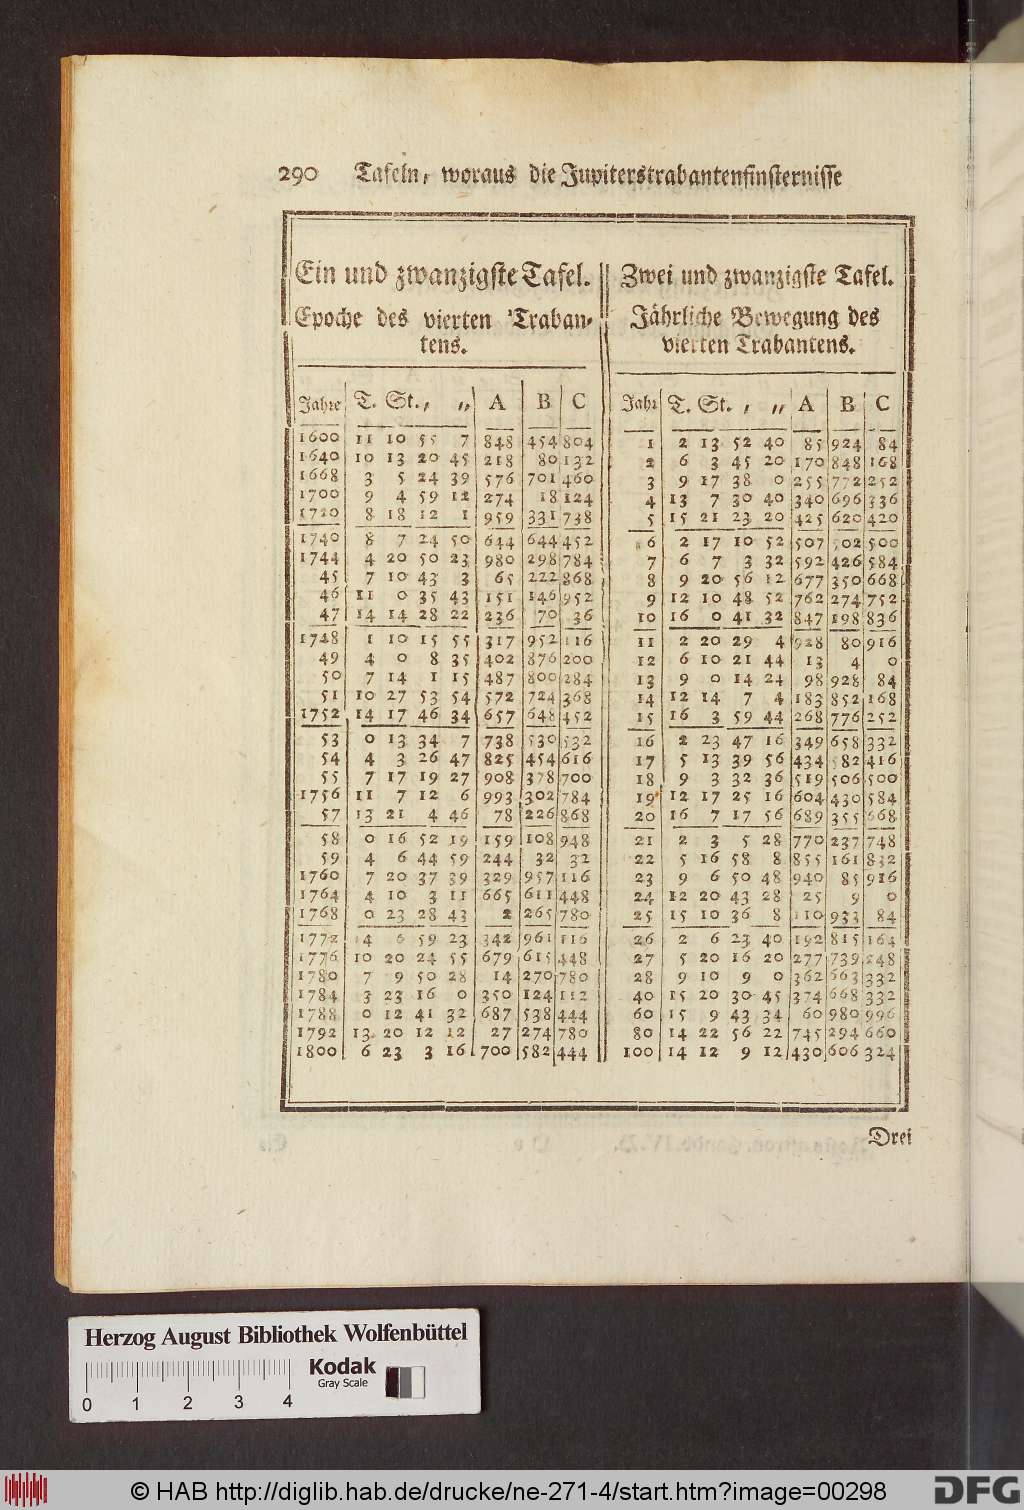 290 Tafeln, woraus die Jupiterstrabantenfinsternisse
Ein und zwanzigste Tafel.
Epoche des vierten Traban-
tens.
Jahre T. St. , ,, A B C
1600 11 10 55 7 848 454 804
1640 10 13 20 45 218 80 132
1668 3 5 24 39 576 701 460
1700 9 4 59 12 274 18 124
1720 8 18 12 1 959 331 738
1740 8 7 24 50 644 644 452
1744 4 20 50 23 980 298 784
45 7 10 43 3 65 222 868
46 11 0 35 43 151 146 952
47 14 14 28 22 236 70 36
1748 1 10 15 55 317 952 116
49 4 0 8 35 402 876 200
50 7 14 1 15 487 800 284
51 10 27 53 54 572 724 368
1752 14 17 46 34 657 648 452
53 0 13 34 7 738 530 532
54 4 3 26 47 825 454 616
55 7 17 19 27 908 378 700
1756 11 7 12 6 993 302 784
57 13 21 4 46 78 226 868
58 0 16 52 19 159 108 948
59 4 6 44 59 244 32 32
1760 7 20 37 39 329 957 116
1764 4 10 3 11 665 611 448
1768 0 23 28 43 2 265 780
1772 14 6 59 23 342 961 116
1776 10 20 24 55 679 615 448
1780 7 9 50 28 14 270 780
1784 3 23 16 0 350 124 112
1788 0 12 41 32 687 538 444
1792 13 20 12 12 27 274 780
1800 6 23 3 16 700 582 444
Zwei und zwanzigste Tafel.
Jährliche Bewegung des
vierten Trabantens.
Jahr T. St. , ,, A B C
1 2 13 52 40 85 924 84
2 6 3 45 20 170 848 168
3 9 17 38 0 255 772 252
4 13 7 30 40 340 696 336
5 15 21 23 20 425 620 420
6 2 17 10 52 507 502 500
7 6 7 3 32 592 426 584
8 9 20 56 12 677 350 668
9 12 10 48 52 762 274 752
10 16 0 41 32 847 198 836
11 2 20 29 4 928 80 916
12 6 10 21 44 13 4 0
13 9 0 14 24 98 928 84
14 12 14 7 4 183 852 168
15 16 3 59 44 268 776 252
16 2 23 47 16 349 658 332
17 5 13 39 56 434 582 416
18 9 3 32 36 519 506 500
19 12 17 25 16 604 430 584
20 16 7 17 56 689 355 668
21 2 3 5 28 770 237 748
22 5 16 58 8 855 161 832
23 9 6 50 48 940 85 916
24 12 20 43 28 25 9 0
25 15 10 36 8 110 933 84
26 2 6 23 40 192 815 164
27 5 20 16 20 277 739 248
28 9 10 9 0 362 663 332
40 15 20 30 45 374 668 332
60 15 9 43 34 60 980 996
80 14 22 56 22 745 294 660
100 14 12 9 12 430 606 324
Drei
Herzog August Bibliothek Wolfenbüttel
Kodak
Gray Scale
0 1 2 3 4
© HAB http://diglib.hab.de/drucke/ne-271-4/start.htm?image=00298
DFG